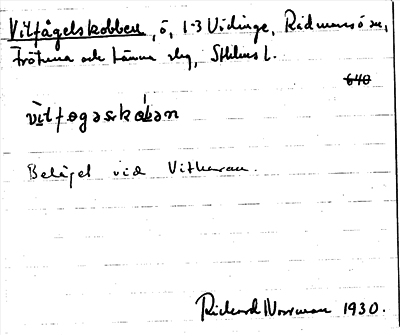 Vitfågelskobben, ö, 1-3 Vidinge, Rådmansö sn,
Frötuna och Länna slg, Sthlms l.
640
vìtfogəskɷ́bən
Beläget vid Vitharan.
Rickard Norrman 1930.